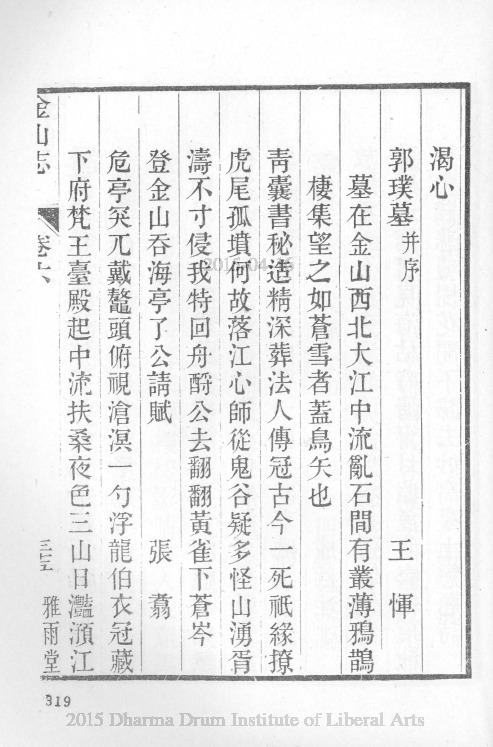 渴心
郭璞墓并序 王惲
墓在金山西北大江中流亂石間有叢薄鴉鵲
棲集望之如蒼雪者蓋鳥矢也
靑囊書秘造精深葬法人傳冠古今一死祇緣撩
虎尾孤墳何故落江心師從鬼谷疑多怪山湧胥
濤不寸侵我特回舟酹公去翻翻黃雀下蒼岑
登金山吞海亭了公請賦 張翥
危亭突兀戴鼇頭俯視滄溟一勺浮龍伯衣冠藏
下府梵王臺殿起中流扶桑夜色三山日灔澦江
金山志 卷六 三十五 雅雨堂
319
2015 Dharma Drum Institute of Liberal Arts